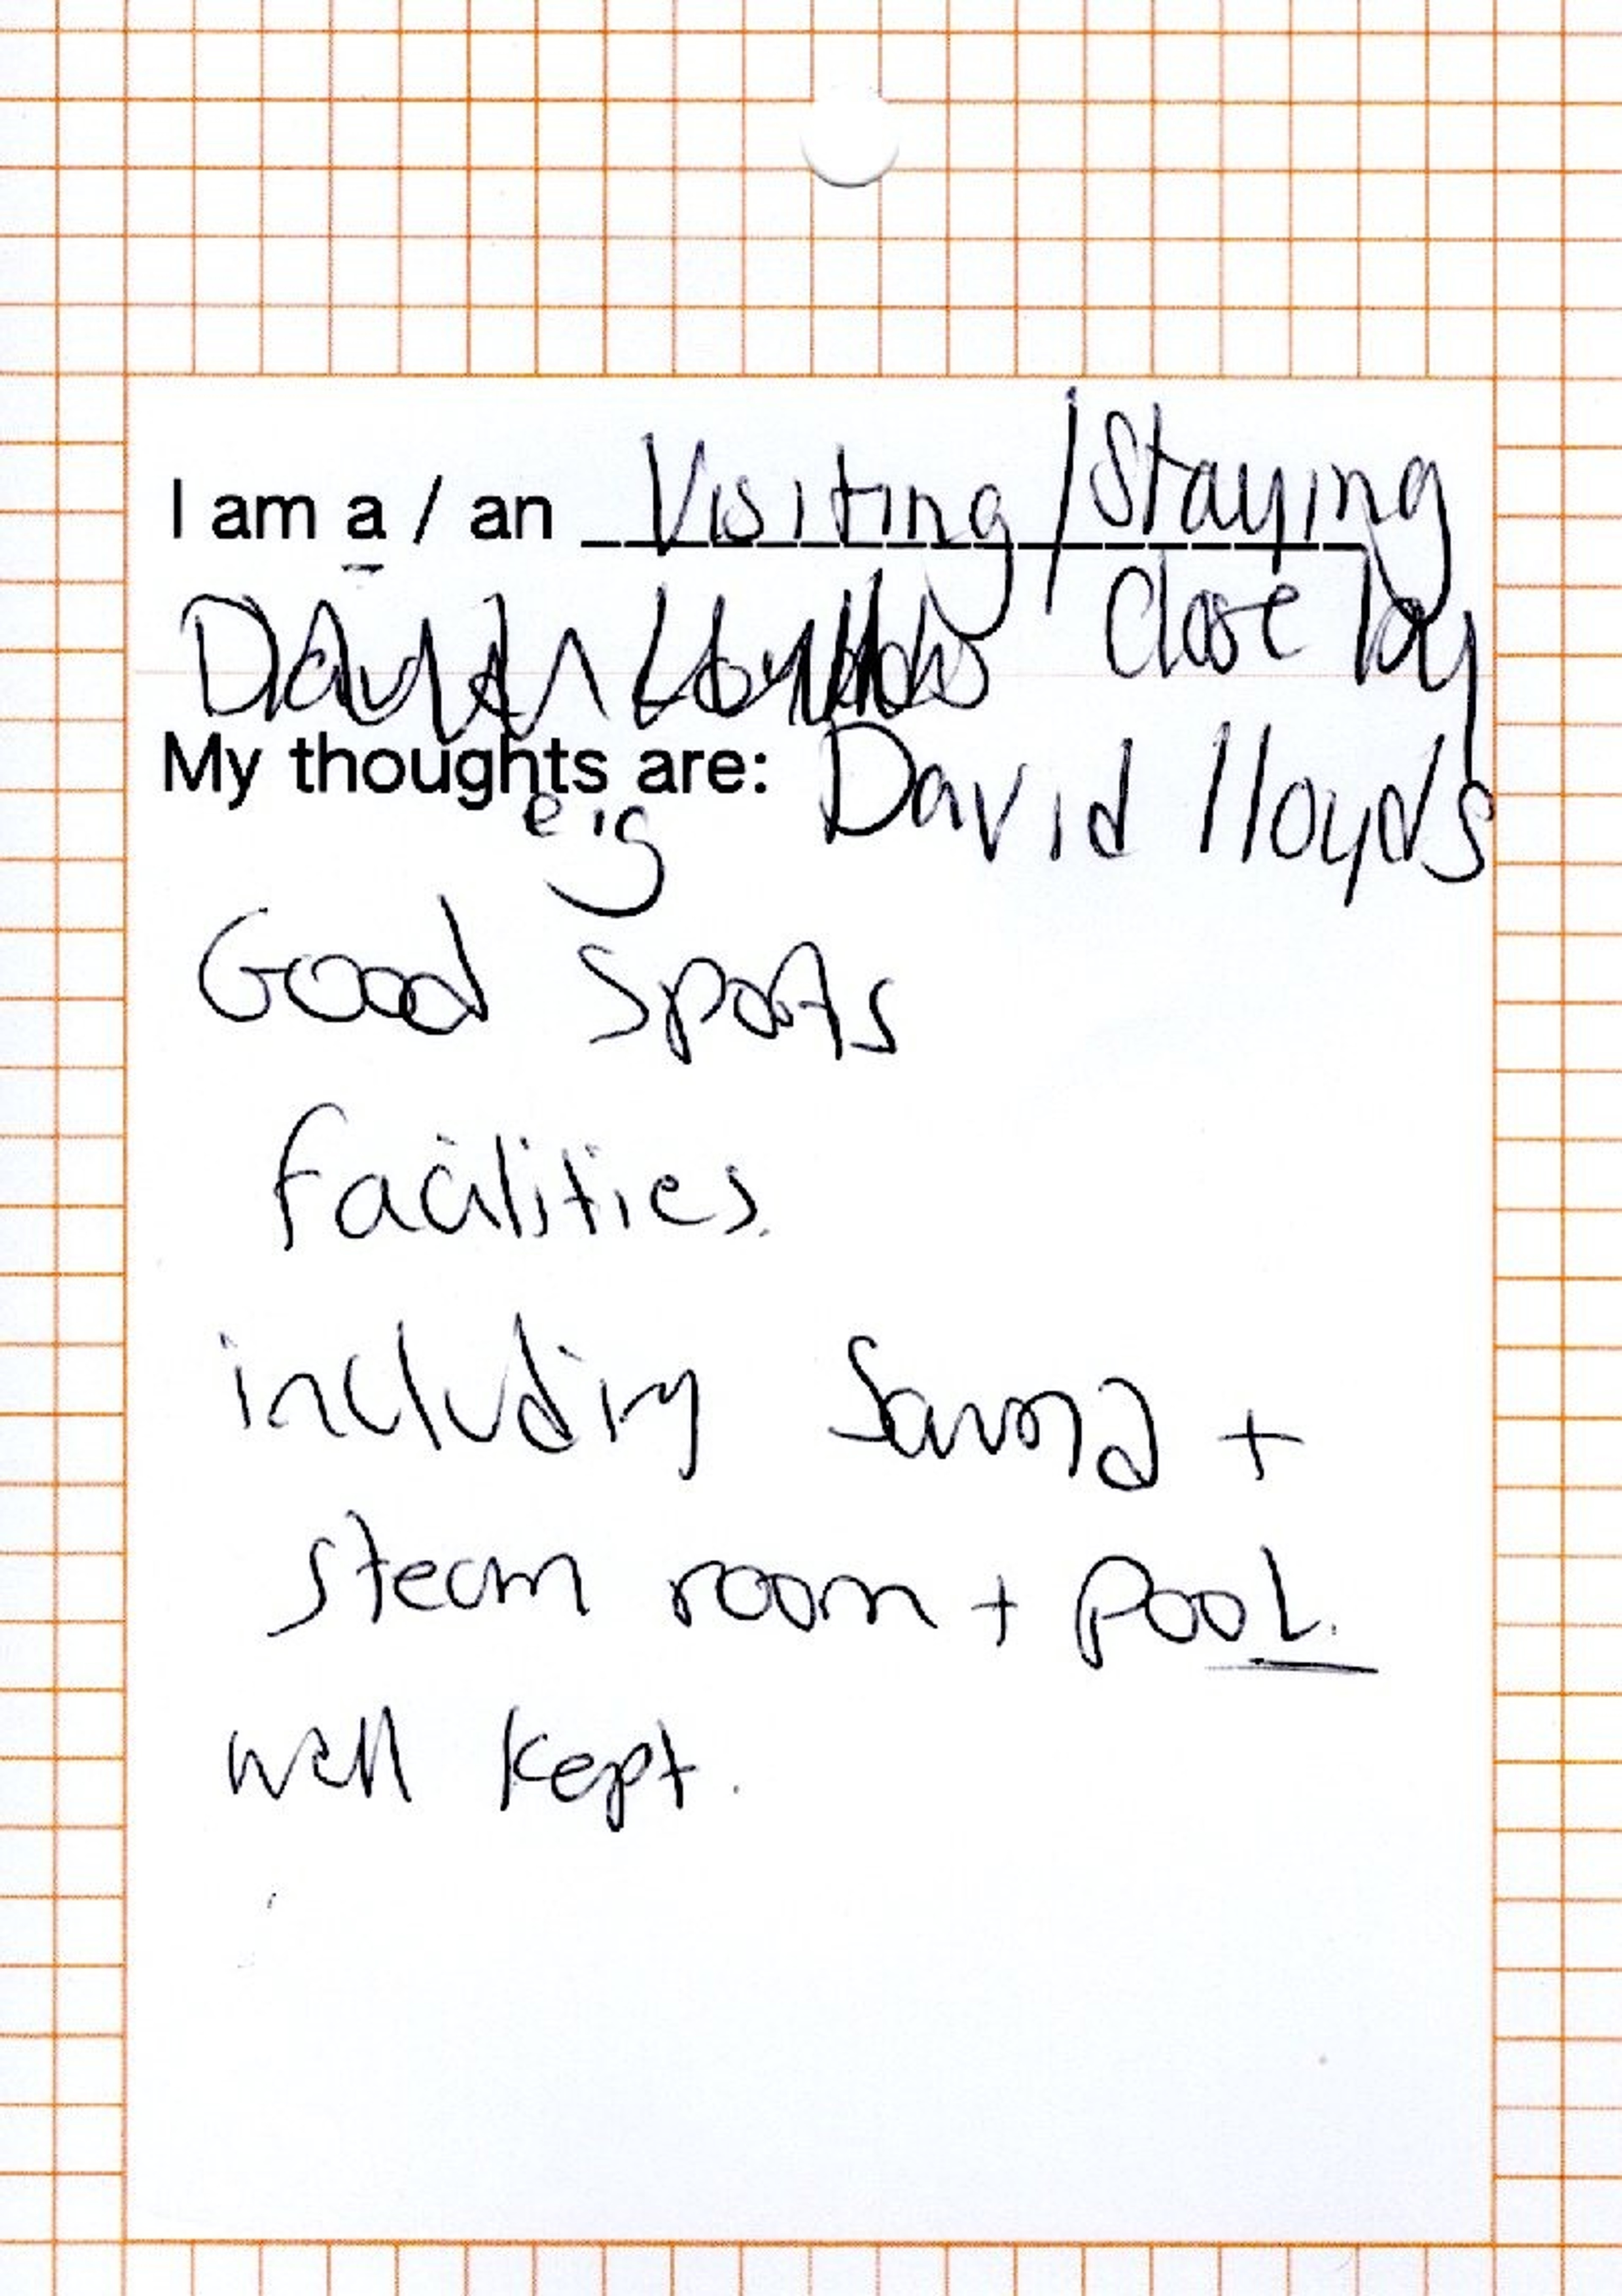 I am a / an Visiting / Staying
close by
My thoughts are: David lloyds
e.g
Good Sports
facilities.
including Sauna +
steam room + pool.
well kept.